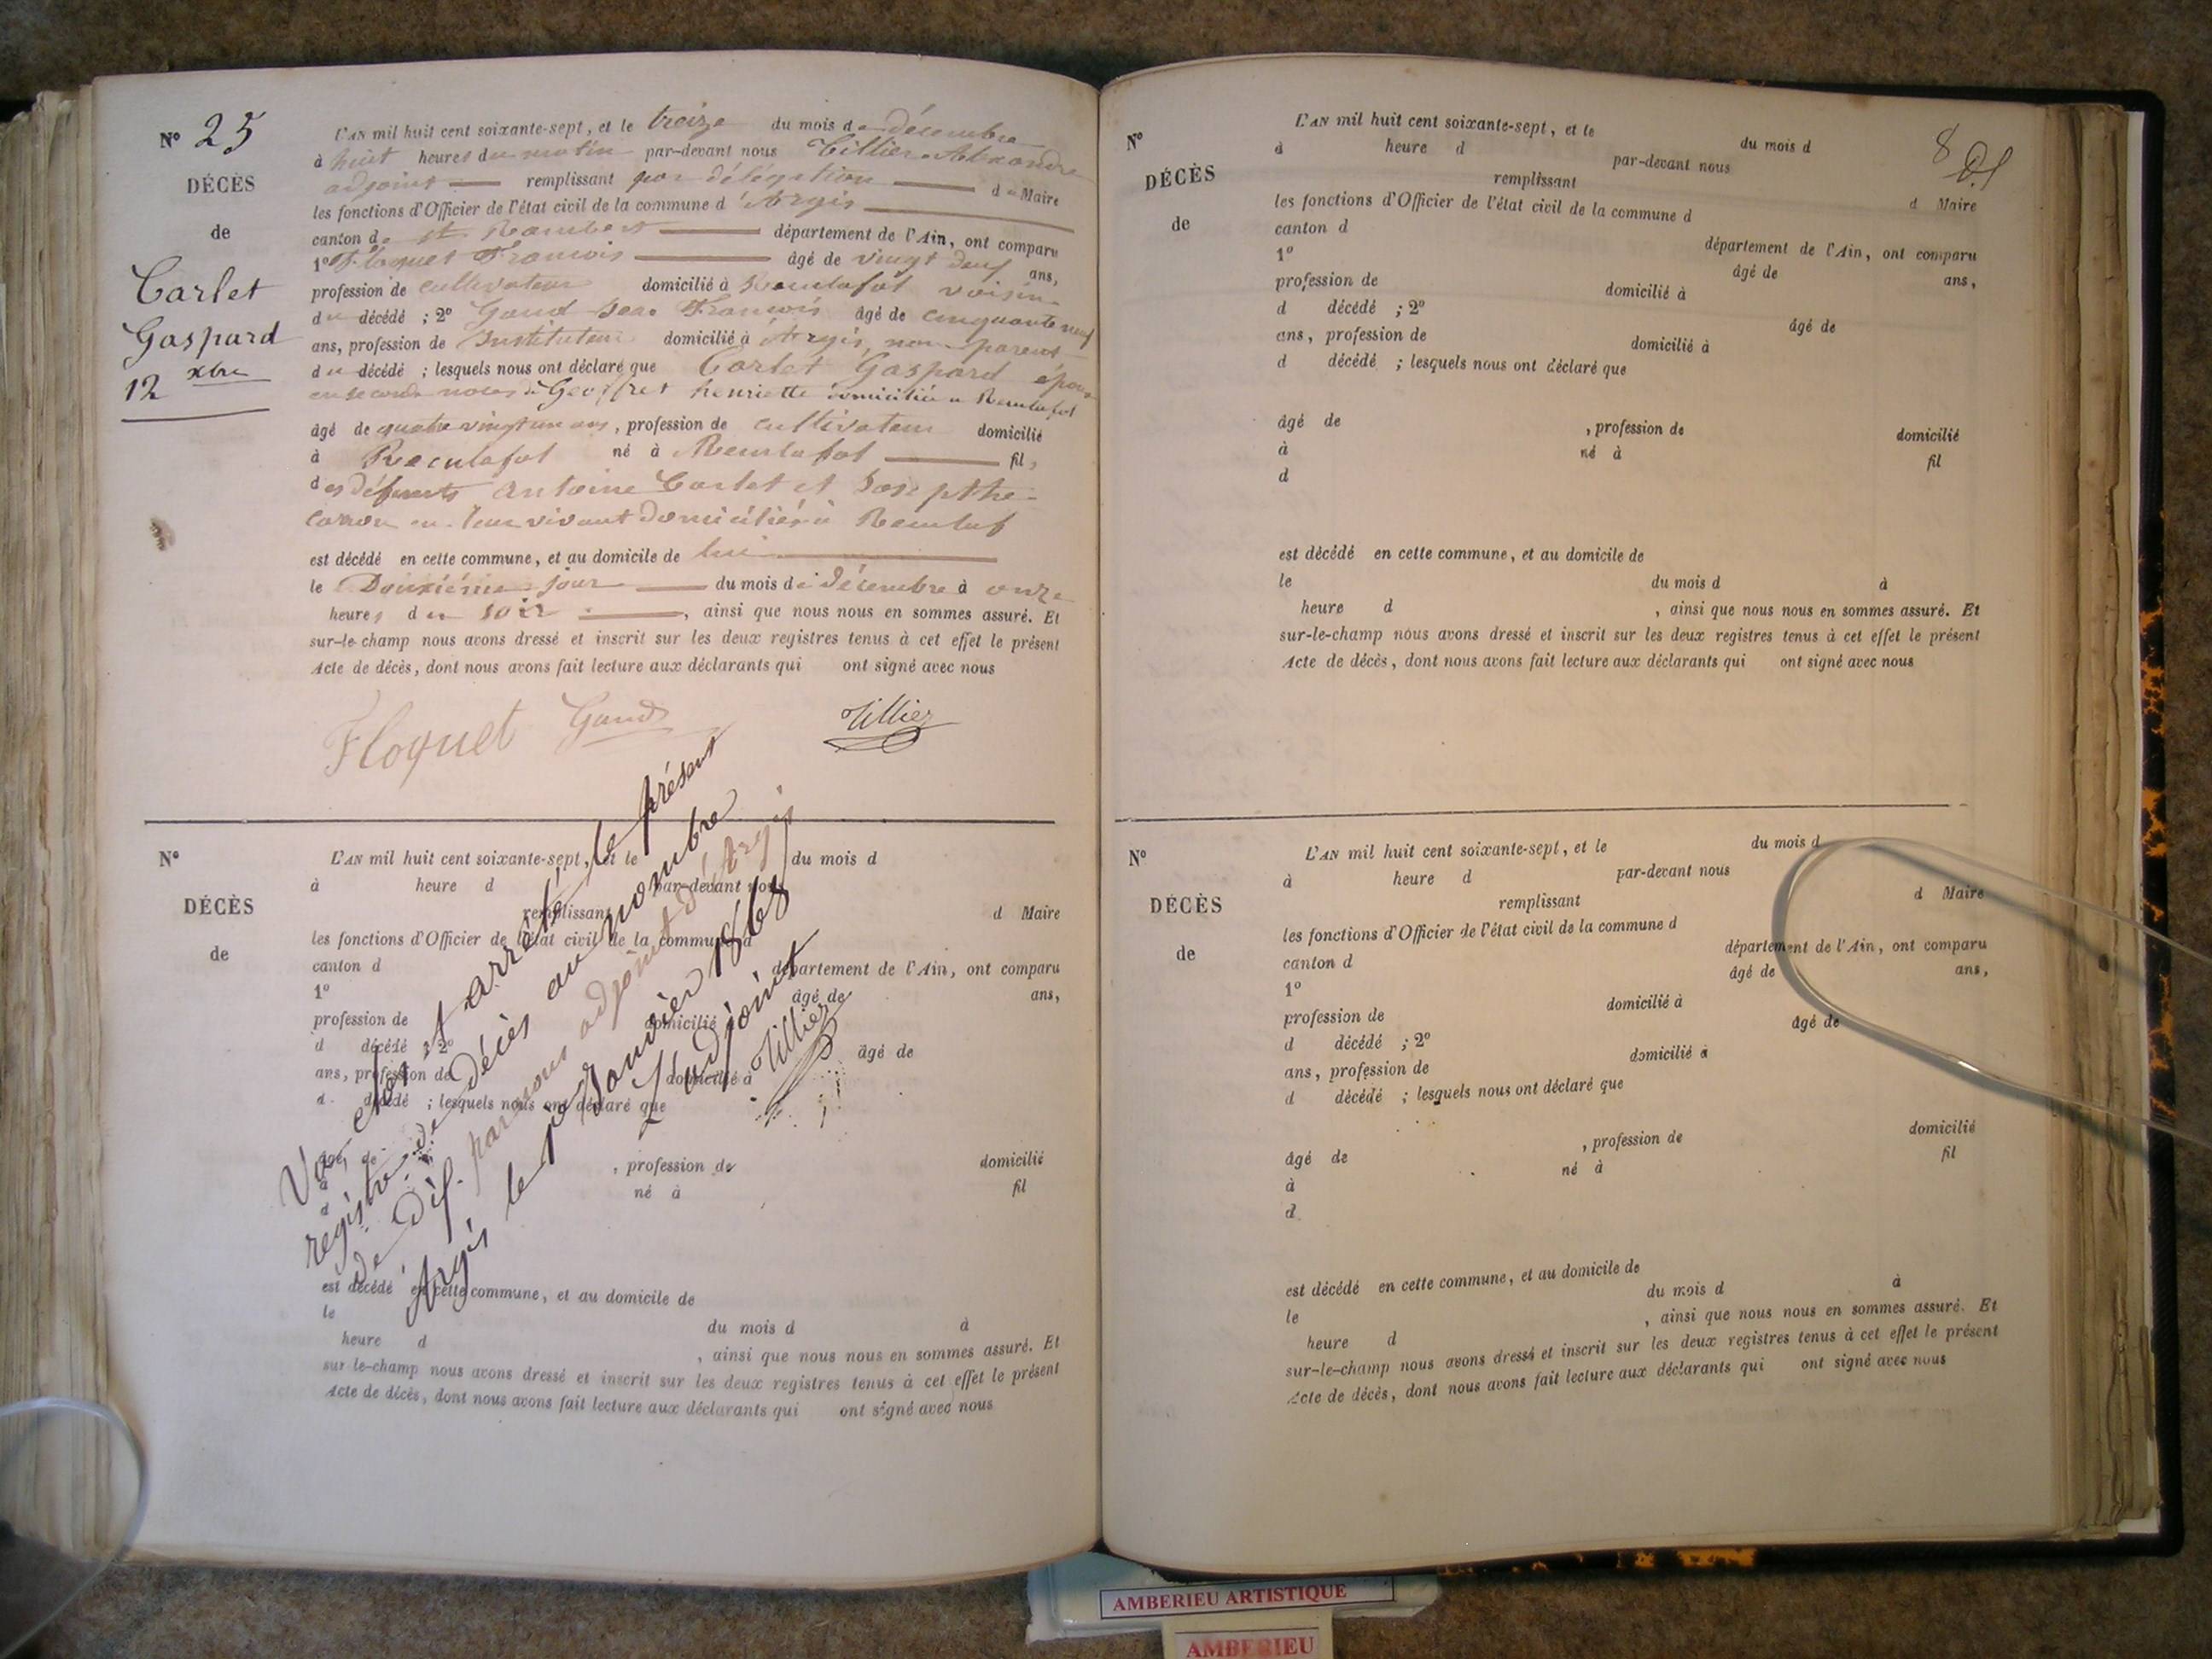 N° 25
DÉCÈS
de
Carlet
Gaspard
12 xbre
L'AN mil huit cent soixante-sept, et le treize du mois de décembre
à huit heures du matin par-devant nous Tillier Alexandre
adjoint remplissant par délégation du Maire
les fonctions d'Officier de l'état civil de la commune d'Argis
canton de St Rambert département de l'Ain, ont comparu
1° Floquet François âgé de vingt deux ans,
profession de cultivateur domicilié à Reculafol voisin
du décédé ; 2° Gaud Jean François âgé de cinquante neuf
ans, profession de Instituteur domicilié à Argis, non parent
du décédé ; lesquels nous ont déclaré que Carlet Gaspard époux
en seconde noces de Geoffret henriette domiciliée a Reculafol
âgé de quatre vingt un ans, profession de cultivateur domicilié
à Reculafol né à Reculafol fils
des défunts Antoine Carlet et Josepthe
Carron en leur vivant domiciliés à Reculaf
est décédé en cette commune, et au domicile de lui
le Douxiéme jour du mois de décembre à onze
heures du soir, ainsi que nous nous en sommes assuré. Et
sur-le-champ nous avons dressé et inscrit sur les deux registres tenus à cet effet le présent
Acte de décès, dont nous avons fait lecture aux déclarants qui ont signé avec nous
Floquet Gaud Tillier
N°
DÉCÈS
de
L'AN mil huit cent soixante-sept, et le du mois d
à heure d par-devant nous
remplissant d Maire
les fonctions d'Officier de l'état civil de la commune d
canton d département de l'Ain, ont comparu
1° âgé de ans,
profession de domicilié à
d décédé ; 2° âgé de
ans, profession de domicilié à
d décédé ; lesquels nous ont déclaré que
âgé de , profession de domicilié
à né à fil
d
est décédé en cette commune, et au domicile de
le du mois d à
heure d , ainsi que nous nous en sommes assuré. Et
sur-le-champ nous avons dressé et inscrit sur les deux registres tenus à cet effet le présent
Acte de décès, dont nous avons fait lecture aux déclarants qui ont signé avec nous
Vu et arrêté le présent
registre de décès au nombre
de par nous adjoint d'Argis
Argis le Janvier 1868
L'adjoint
Tillier
8
N°
DÉCÈS
de
L'AN mil huit cent soixante-sept, et le du mois d
à heure d par-devant nous
remplissant d Maire
les fonctions d'Officier de l'état civil de la commune d
canton d département de l'Ain, ont comparu
1° âgé de ans,
profession de domicilié à
d décédé ; 2° âgé de
ans, profession de domicilié à
d décédé ; lesquels nous ont déclaré que
âgé de , profession de domicilié
à né à fil
d
est décédé en cette commune, et au domicile de
le du mois d à
heure d , ainsi que nous nous en sommes assuré. Et
sur-le-champ nous avons dressé et inscrit sur les deux registres tenus à cet effet le présent
Acte de décès, dont nous avons fait lecture aux déclarants qui ont signé avec nous
N°
DÉCÈS
de
L'AN mil huit cent soixante-sept, et le du mois d
à heure d par-devant nous
remplissant d Maire
les fonctions d'Officier de l'état civil de la commune d
canton d département de l'Ain, ont comparu
1° âgé de ans,
profession de domicilié à
d décédé ; 2° âgé de
ans, profession de domicilié à
d décédé ; lesquels nous ont déclaré que
âgé de , profession de domicilié
à né à fil
d
est décédé en cette commune, et au domicile de
le du mois d à
heure d , ainsi que nous nous en sommes assuré. Et
sur-le-champ nous avons dressé et inscrit sur les deux registres tenus à cet effet le présent
Acte de décès, dont nous avons fait lecture aux déclarants qui ont signé avec nous
AMBERIEU ARTISTIQUE
AMBERIEU